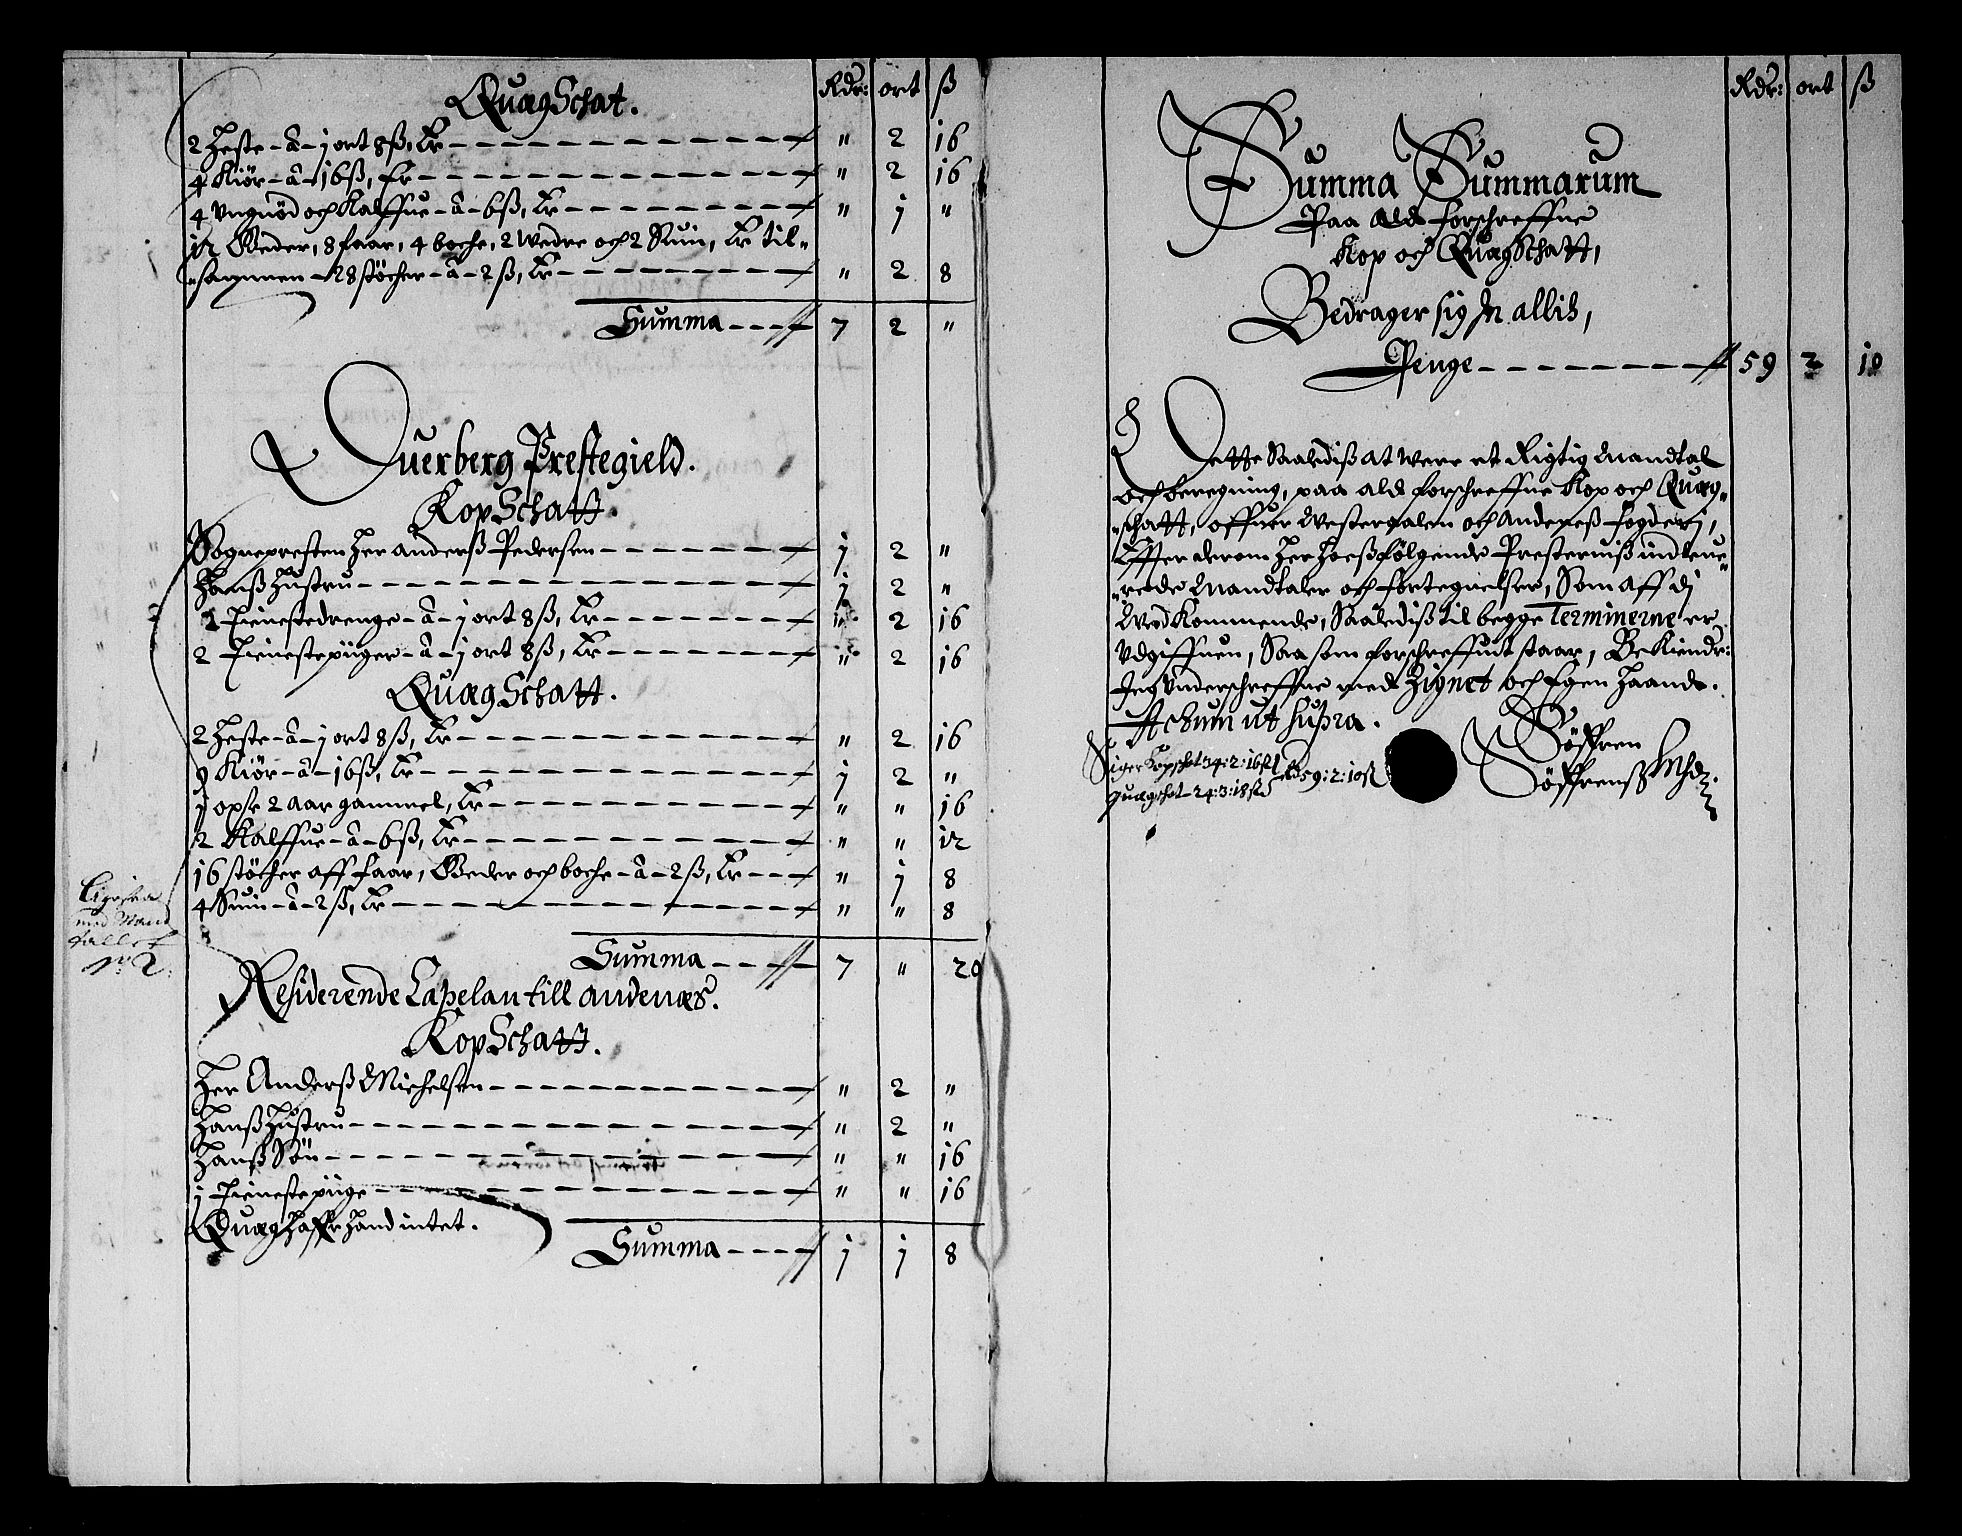 Rdr: ort ß
Quæg Schat.
2 Heste - â - j ort 8 ß, Er " 2 16
4 Kiør - â - 16 ß, Er " 2 16
4 Vngnød och Kalffue - â - 6 ß, Er " j "
12 Geder, 8 faar, 4 boche, 2 Wedre och 2 Suin, Er til-
sammen - 28 støcher - â - 2 ß, Er " 2 8
Summa 7 2 "
Querberg Prestegield.
Kop Schatt.
Sognepresten Her Anderß Pedersen j 2 "
Hanß Hustru j 2 "
2 Tienestedrenge - â - j ort 8 ß, Er " 2 16
2 Tienestepiiger - â - j ort 8 ß, Er " 2 16
Quæg Schatt.
2 Heste - â - j ort 8 ß, Er " 2 16
9 Kiør - â - 16 ß, Er j 2 "
j opse 2 Aar gammel, Er " " 16
2 Kalffue - â - 6 ß, Er " " 12
16 støcher aff faar, Geder och boche - â - 2 ß, Er " j 8
4 Suin - â - 2 ß, Er " " 8
Ligesaa
med Man
tallet
No 2.
Summa 7 " 20
Residerende Capelan till Andenæs.
Kop Schatt.
Her Anderß Michelsen " 2 "
Hanß Hustru " 2 "
Hanß Søn " " 16
j Tienestepiige " " 16
Quæg Haffr Hand intet.
Summa j j 8
Rdr: ort ß
Summa Summarum
Paa Alde forschreffne
Kop och Quæg Schatt,
Bedrager sig In alliß,
Penge 59 2 10
Dette Saalediß at were et Rigtig Mandtal
och beregning, paa alde forschreffne Kop och Quæg-
schatt, offuer Westeraalen och Andeneß fogderj,
Effter derom Her Hoeß følgende Presterniß indleue-
rede Mandtaler och fortegnelser, Som aff dj
Wed Kommende, Saalediß til begge Terminerne er
Vdgiffuen, Saa som forschreffuit staar, BeKiender
Jeg Vnderschreffne med Zignet och Egen Haand.
Actum ut supra.
Siger Kopschat 34: 2: 16 ß
Quægschat - 24: 3: 18 ß
59: 2: 10 ß
Søffren
Søffrenß